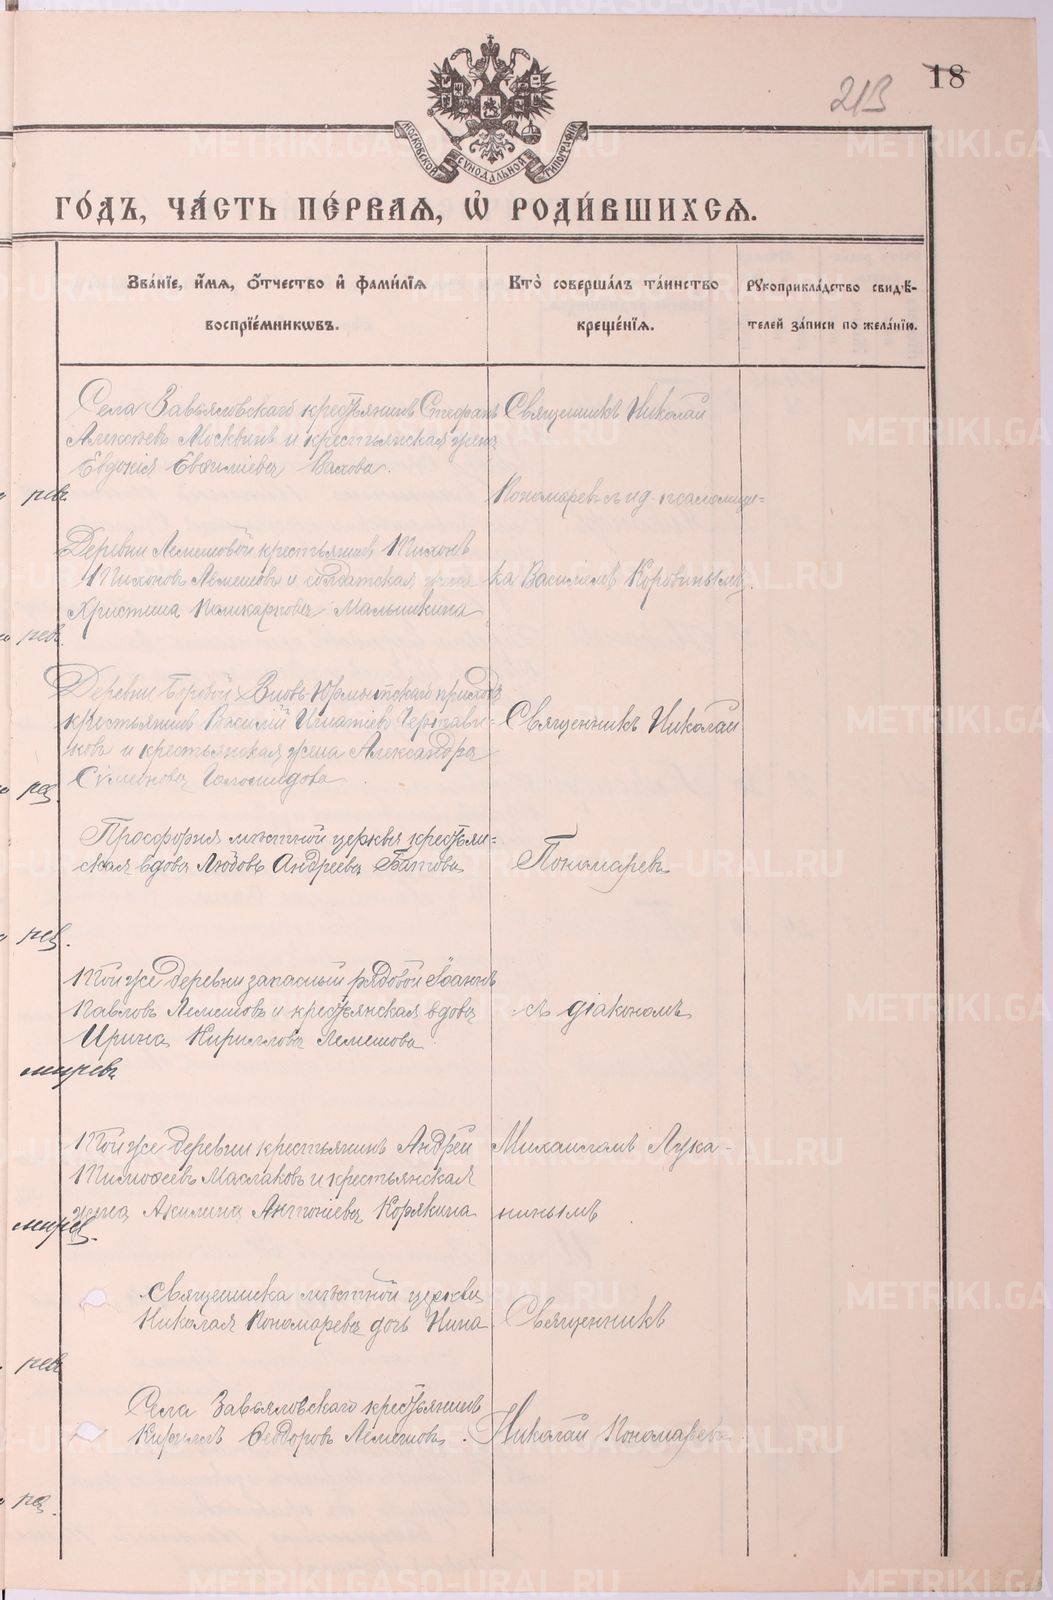 213
18
МОСКОВСКОЙ СѴНОДАЛЬНОЙ ТИПОГРАФІИ
ГО́ДЪ, ЧА́СТЬ ПЕ́РВАЯ, Ѡ҆ РОДИ́ВШИХСЯ.
Зва́нїе, и҆́мѧ, ѻ҆́тчество и҆ фами́лїѧ
воспрїе́мникѡвъ.
Кто̀ соверша́лъ та́инство
креще́нїѧ.
Рꙋкоприкла́дство свидѣ́-
телей за́писи по жела́нїю.
Села Завьяловскаго крестьянинъ Стефанъ
Алексѣевъ Москвинъ и крестьянская жена
Евдокія Евѳиміева Вахова.
Священникъ Николай
Пономаревъ съ и. д. псаломщи-
ка Василіемъ Коровинымъ.
Деревни Лемешовой крестьянинъ Тихонъ
Тихоновъ Лемешовъ и солдатская жена
Христина Поликарпова Малышкина
Деревни Боровой Вновь-Юрмытскаго прихода
крестьянинъ Василій Игнатіевъ
и крестьянская жена Александра
Сѵмеонова
Священникъ Николай
Просфорня мѣстной церкви крестьян-
ская вдова Любовь Андреева
Пономаревъ
Той же деревни запасный рядовой Іоаннъ
Павловъ Лемешовъ и крестьянская вдова
Ирина Кириллова Лемешова
съ діакономъ
Той же деревни крестьянинъ Андрей
Тимоѳеевъ Маслаковъ и крестьянская
жена Акилина Антоніева Корякина
Михаиломъ Лука-
нинымъ
Священника мѣстной церкви
Николая Пономарева дочь Нина
Священникъ
Села Завьяловскаго крестьянинъ
Кириллъ Ѳеодоровъ Лемешовъ.
Николай Пономаревъ
METRIKI.GASO-URAL.RU